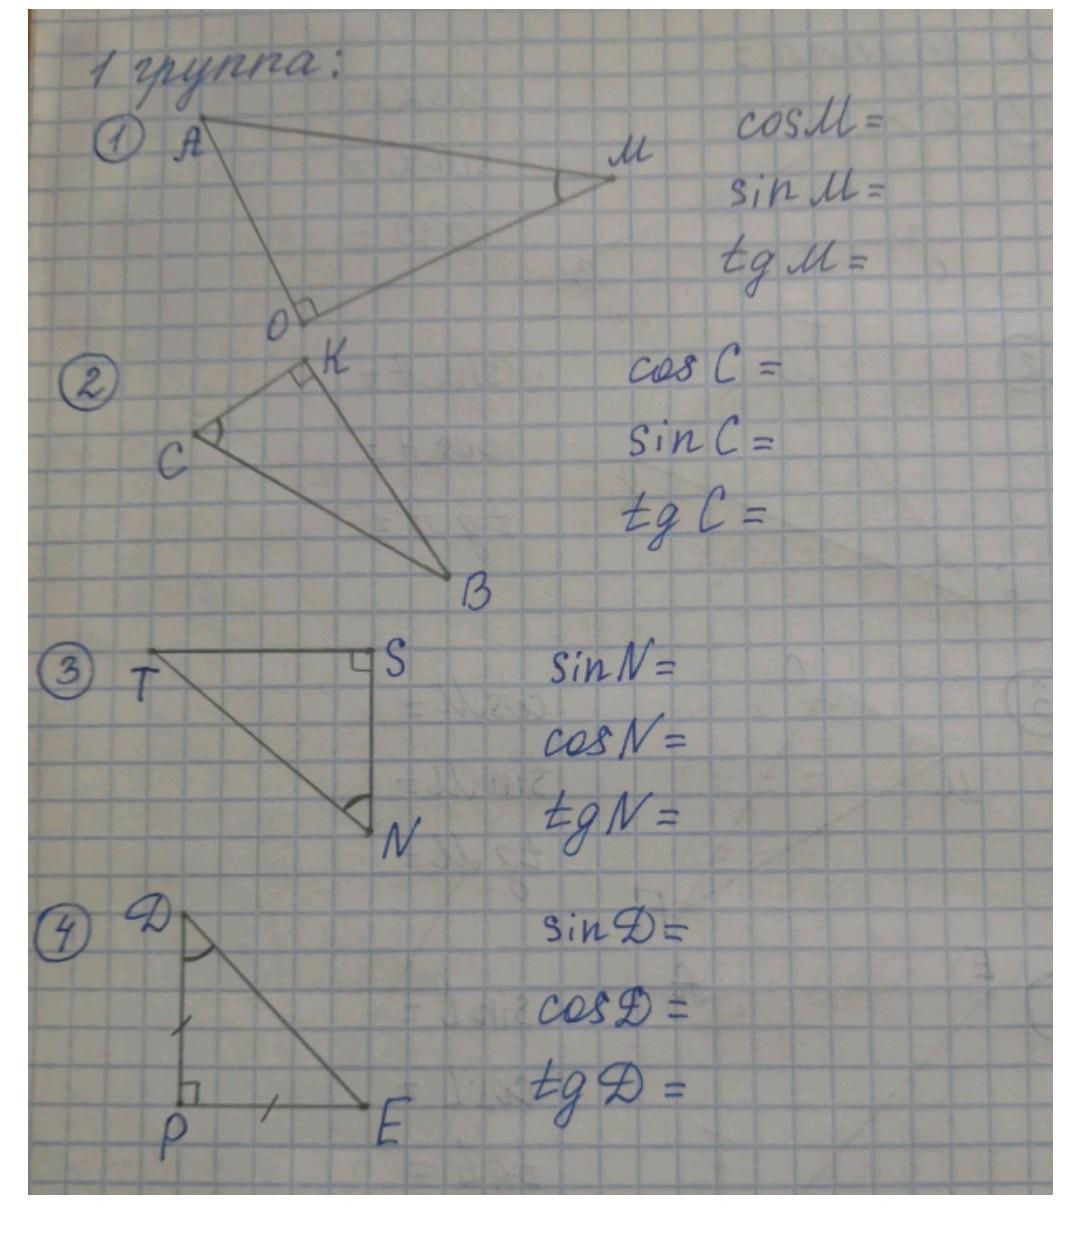 1 группа:
1
A
M
O
cosM=
sinM=
tgM=
2
K
C
B
cosC=
sinC=
tgC=
3
T
S
N
sinN=
cosN=
tgN=
4
D
P
E
sinD=
cosD=
tgD=